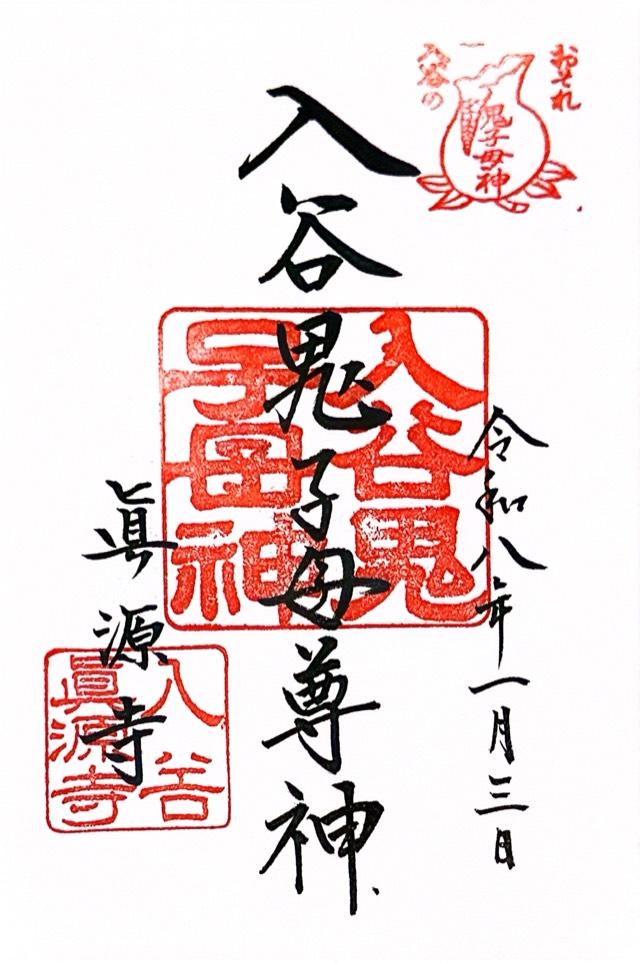 おそれ
入谷の
鬼子母神
令和八年一月三日
入谷鬼子母尊神
入谷鬼
子母神
眞源寺
入谷
眞源寺